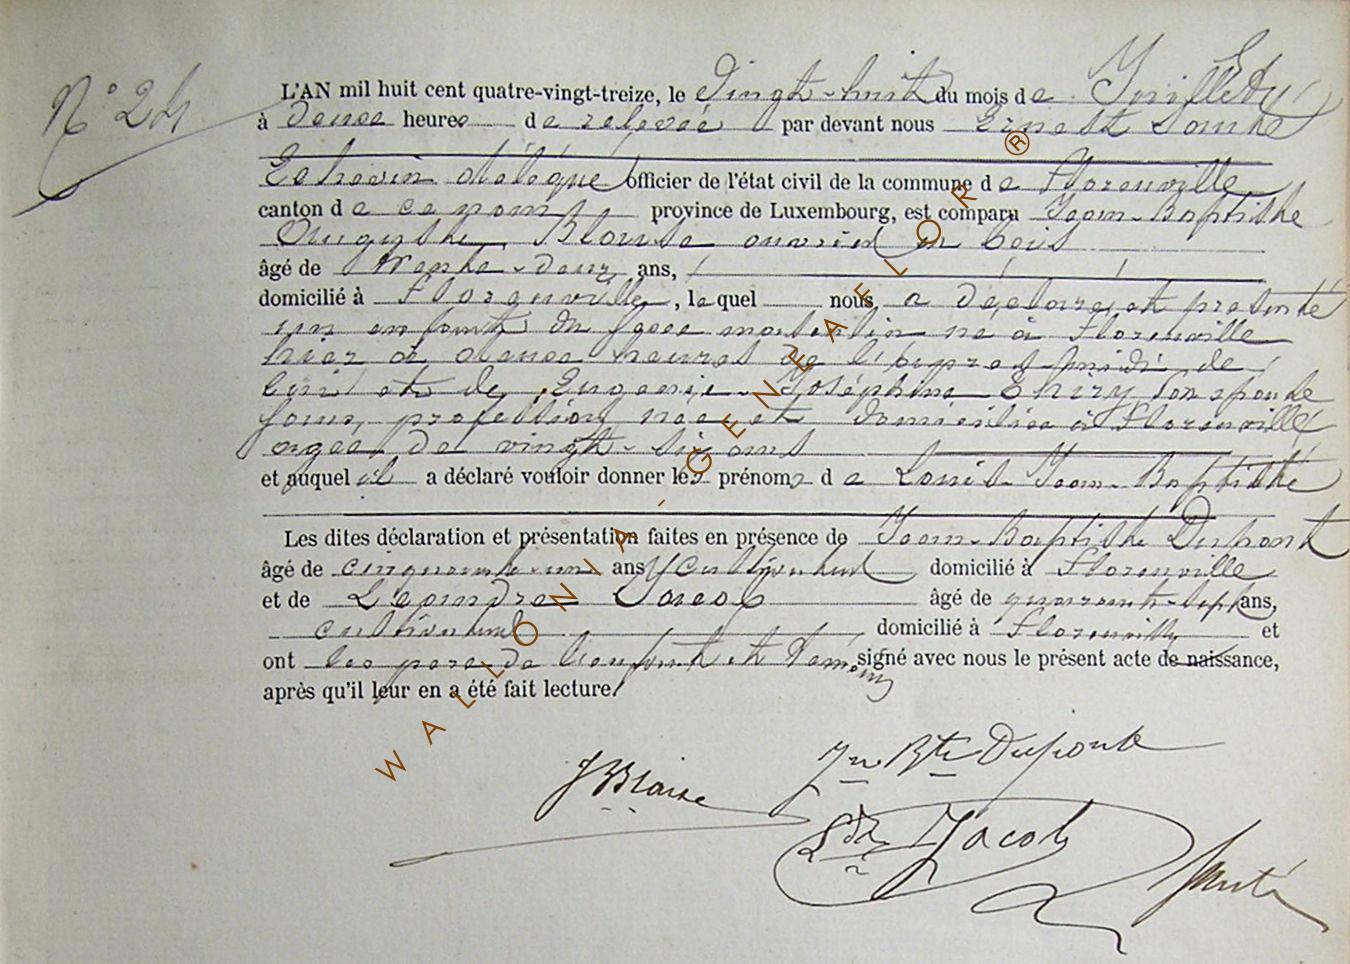 N° 24
L'AN mil huit cent quatre-vingt-treize, le vingt-huit du mois de Juillet
à deux heures de relevée par devant nous Ernest Santé
Echevin délégué officier de l'état civil de la commune de Florenville
canton de ce nom province de Luxembourg, est comparu Jean-Baptiste
Auguste Blaise ouvrier en bois
âgé de trente-deux ans,
domicilié à Florenville, lequel nous a déclaré et présenté
un enfant du sexe masculin né à Florenville
hier à deux heures de l'après-midi de
lui et de Eugénie-Joséphine Thiry son épouse
sans profession née et domiciliée à Florenville
agée de vingt-six ans
et auquel il a déclaré vouloir donner les prénoms de Louis-Jean-Baptiste
Les dites déclaration et présentation faites en présence de Jean-Baptiste Dupont
âgé de cinquante-un ans, cultivateur domicilié à Florenville
et de Léandre Jacob âgé de quarante-sept ans,
cultivateur domicilié à Florenville et
ont les père de l'enfant et témoins signé avec nous le présent acte de naissance,
après qu'il leur en a été fait lecture.
JBBlaise
Jn Bte Dupont
Ldre Jacob
Santé
WALLONIA-GENEAELOR®